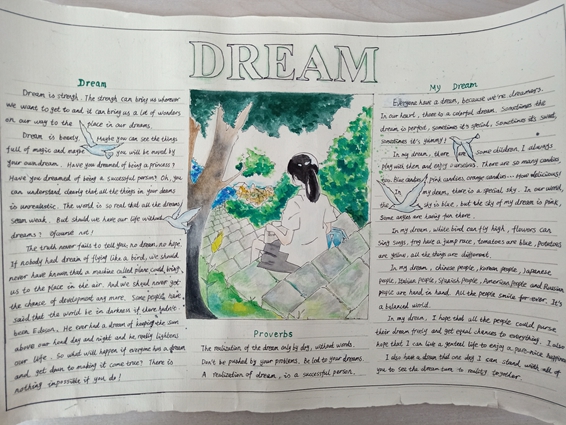 DREAM
Dream
Dream is strengh. The strengh can bring us wherever
we want to get to and it can bring us a lot of wonders
on our way to the place in our dreams.
Dream is beauty. Maybe you can see the things
full of magic and maybe you will be moved by
your own dream. Have you dreamed of being a princess?
Have you dreamed of being a successful person? Oh, you
can understand clearly that all the things in your dreams
is unrealistic. The world is so real that all the dreams
seem weak. But should we have our life without
dreams? Of course not!
The truth never fails to tell you, no dream, no hope.
If nobody had dream of flying like a bird, we should
never have known that a machine called plane could bring
us to the place in the air. And we should never got
the chance of development any more. Some people have
said that the world be in darkness if there hadn't
been Edison. He ever had a dream of keeping the sun
above our head day and night and he really lightens
our life. So what will happen if everyone has a dream
and get down to making it come true? There is
nothing impossible if you do!
Proverbs
The realization of the dream only by day, without words.
Don't be pushed by your problems. Be led to your dreams.
A realization of dream, is a successful person.
My Dream
Everyone have a dream, because we're dreamers.
In our heart, there is a colorful dream. Sometimes the
dream is perfect, sometimes it's special, sometimes it's sweet,
sometimes it's yummy!
In my dream, there are some children, I always
play with them and enjoy ourselves. There are so many candies
Blue candies, pink candies, orange candies... How delicious!
In my dream, there is a special sky. In our world, the
sky is blue, but the sky of my dream is pink,
Some angles are having fun there.
In my dream, white bird can fly high, flowers can
sing songs, frog have a jump race, tomatoes are blue, potatoes
are yellow, all the things are different.
In my dream, chinese people, korean people, Japanese
people, Italian people, Spanish people, American people and Russian
people are hand in hand. All the people smile for ever. It's
a balanced world.
In my dream, I hope that all the people could pursue
their dream freely and get equal chances to everything. I also
hope that I can live a genteel life to enjoy a pure-nice happiness
I also have a dream that one day I can stand with all of
you to see the dream turn to reality together.